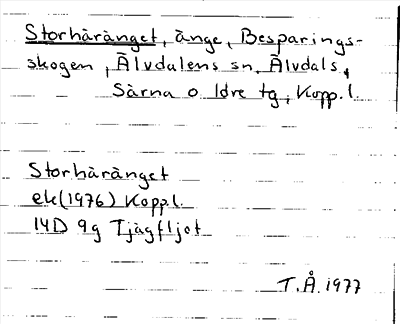 Storhäränget, änge, Besparings-
skogen, Älvdalens sn, Älvdals,
Särna o Idre tg, Kopp.l.
Storhäränget
ek(1976) Kopp.l.
14D 9g Tjägfljot
T.Å. 1977